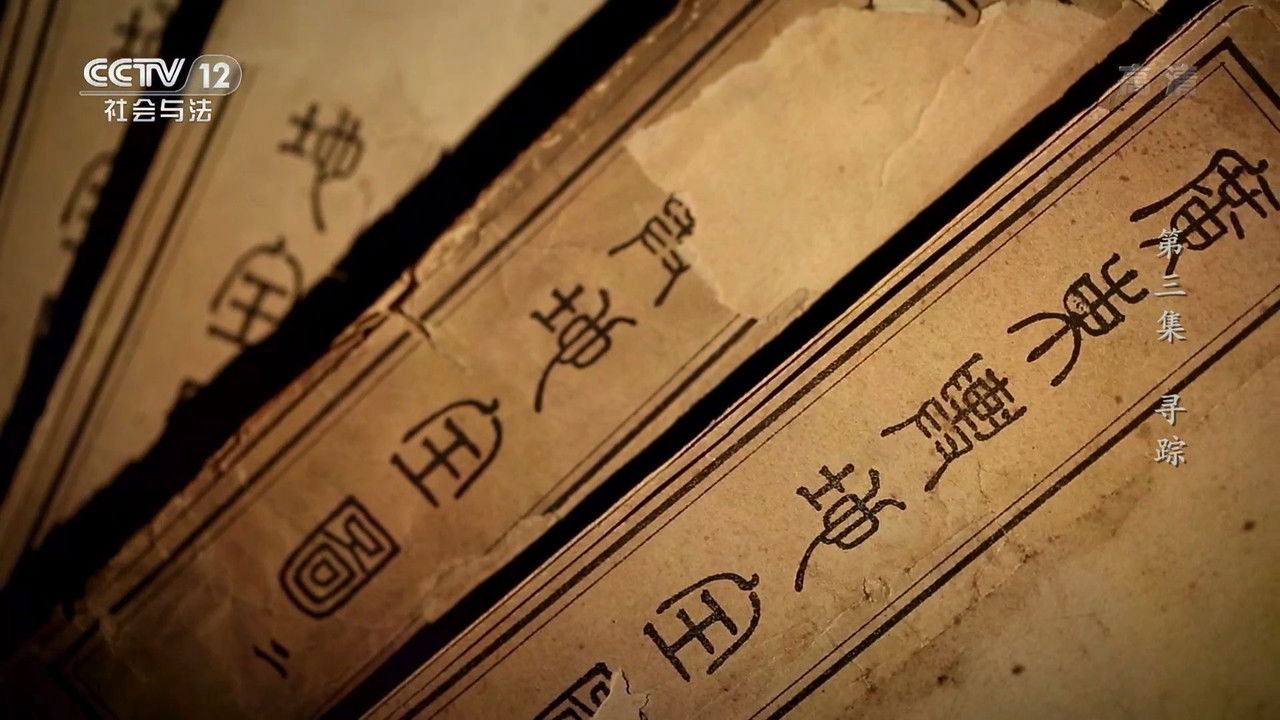 CCTV 12
社会与法
高清
第三集 寻踪
廣東輿地全
輿地全圖
地全